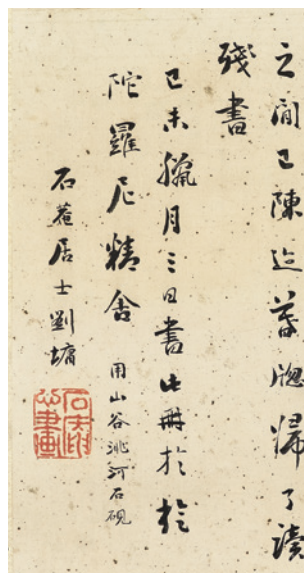 之間已陳迹暮牕歸了讀
殘書
己未臘月三日書此冊於
陀羅尼精舍 用山谷洮河石硯
石菴居士劉墉